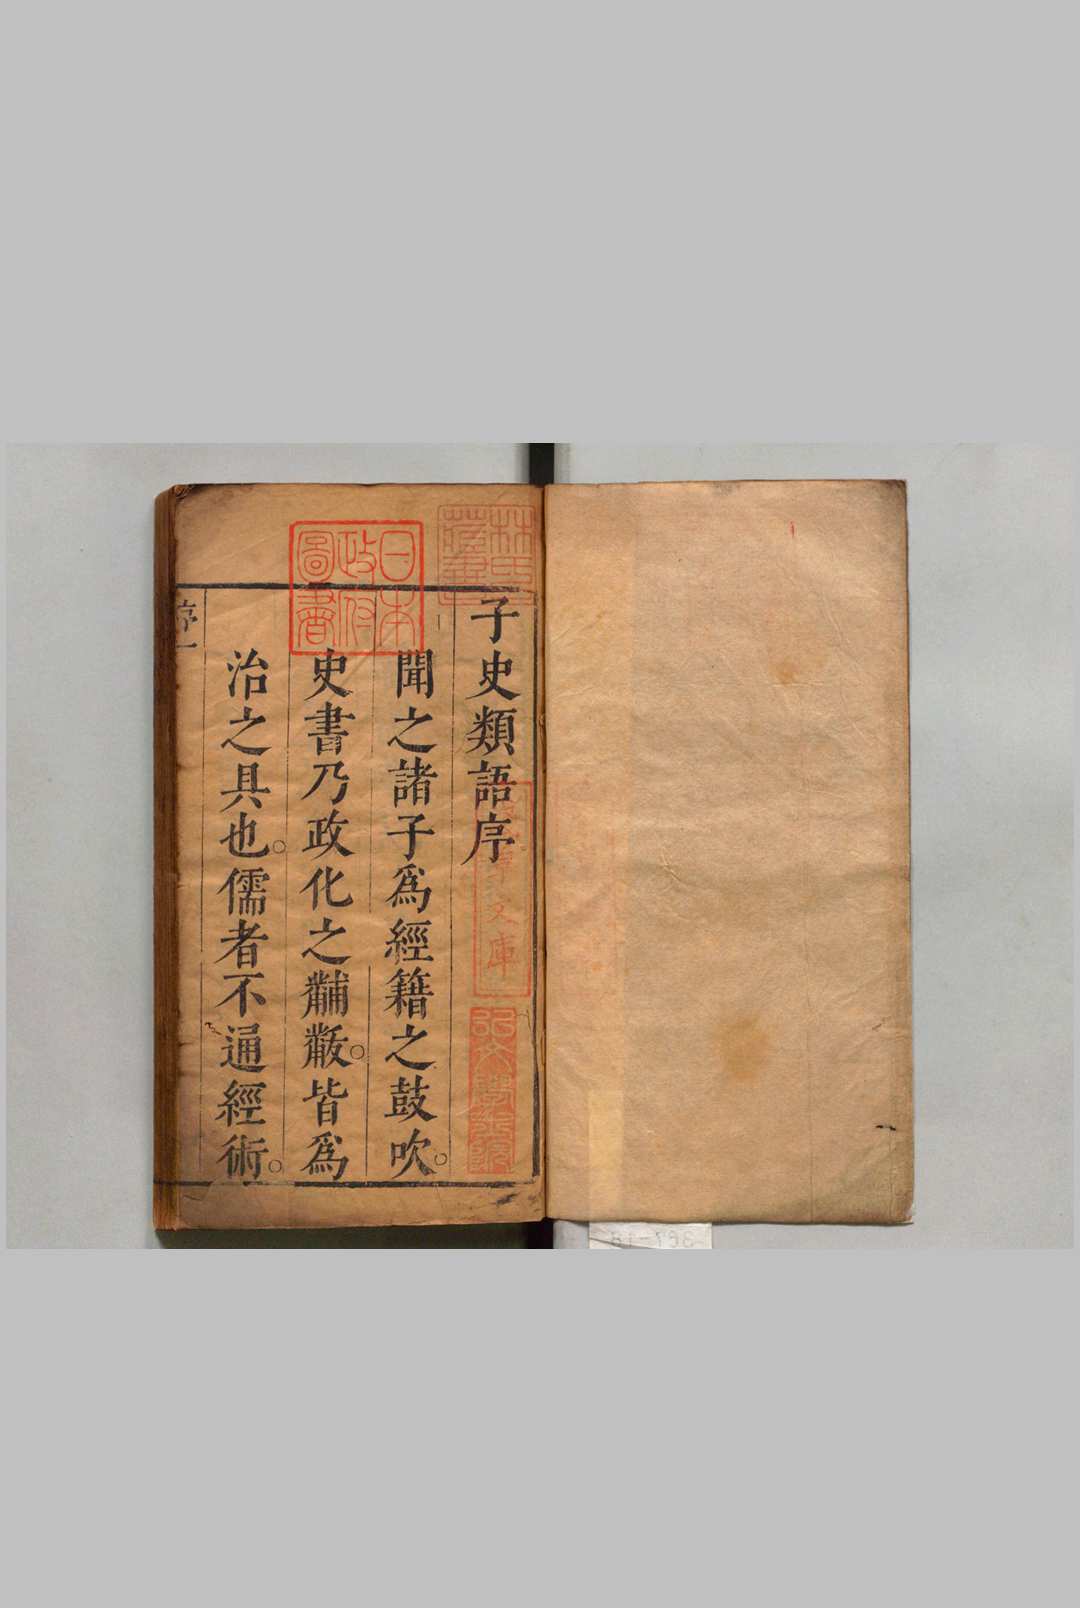 子史類語序
聞之諸子爲經籍之鼓吹。
史書乃政化之黼黻。皆爲
治之具也。儒者不通經術。
序一
日本政府圖書
林氏藏書
文庫